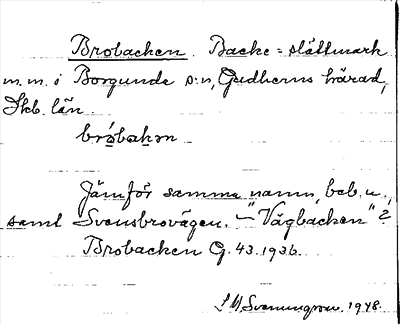 Brobacken. Backe = slåttmark
m.m. i Borgunda s:n, Gudhems härad,
Skb. län.
bróbakən
Jämför samma namn, beb. n.,
saml Svensbrovägen. – "Vägbacken"?
Brobacken G. 43. 1936.
1948.